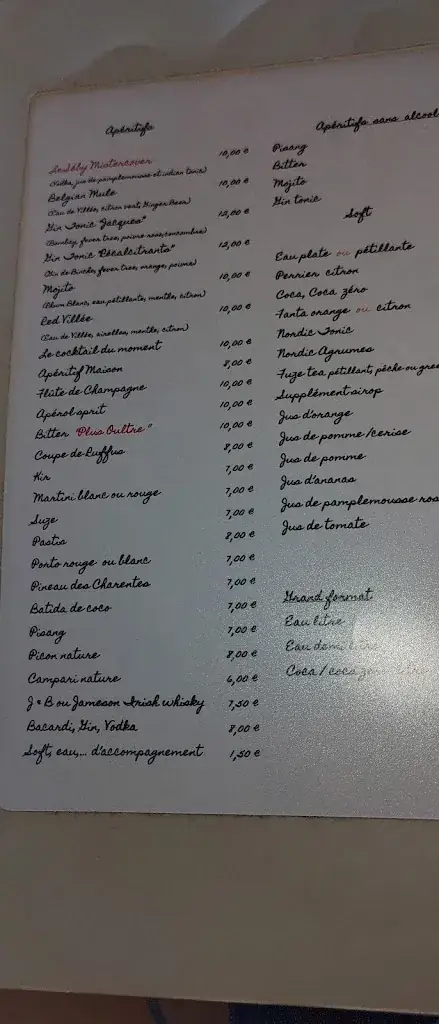 Apéritifs
LeSéby Mistercover 10,00 €
(Vodka, jus de pamplemousse et indian tonic)
Belgian Mule 10,00 €
(Eau de Villée, citron vert, Ginger Beer)
Gin Tonic Jacques* 12,00 €
(Bombay, fever tree, poivre rose, concombre)
Gin Tonic "Récalcitrants" 12,00 €
(Au de Buchs, fever tree, orange, poivre)
Mojito 10,00 €
(Rhum Blanc, eau pétillante, menthe, citron)
Red Villée 10,00 €
(Eau de Villée, airelles, menthe, citron)
Le cocktail du moment 10,00 €
Apéritif Maison 8,00 €
Flûte de Champagne 10,00 €
Apérol sprit 10,00 €
Bitter "Plus Oultre" 10,00 €
Coupe de Ruffus 8,00 €
Kir 7,00 €
Martini blanc ou rouge 7,00 €
Suze 7,00 €
Pastis 8,00 €
Porto rouge ou blanc 7,00 €
Pineau des Charentes 7,00 €
Batida de coco 7,00 €
Pisang 7,00 €
Picon nature 8,00 €
Campari nature 6,00 €
J & B ou Jameson Irish whisky 7,50 €
Bacardi, Gin, Vodka 8,00 €
Soft, eau,... d'accompagnement 1,50 €
Apéritifs sans alcool
Pisang
Bitter
Mojito
Gin tonic
Soft
Eau plate ou pétillante
Perrier citron
Coca, Coca zéro
Fanta orange ou citron
Nordic Tonic
Nordic Agrumes
Fuze tea pétillant, pêche ou gree
Supplément sirop
Jus d'orange
Jus de pomme/cerise
Jus de pomme
Jus d'ananas
Jus de pamplemousse ros
Jus de tomate
Grand format
Eau litre
Eau demi litre
Coca / coca zero